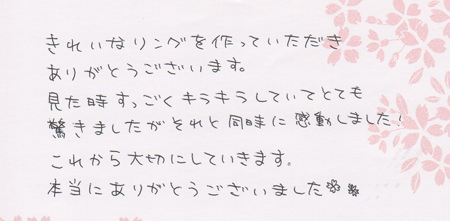 きれいなリングを作っていただき
ありがとうございます。
見た時すっごくキラキラしていてとても
驚きましたがそれと同時に感動しました!
これから大切にしていきます。
本当にありがとうございました